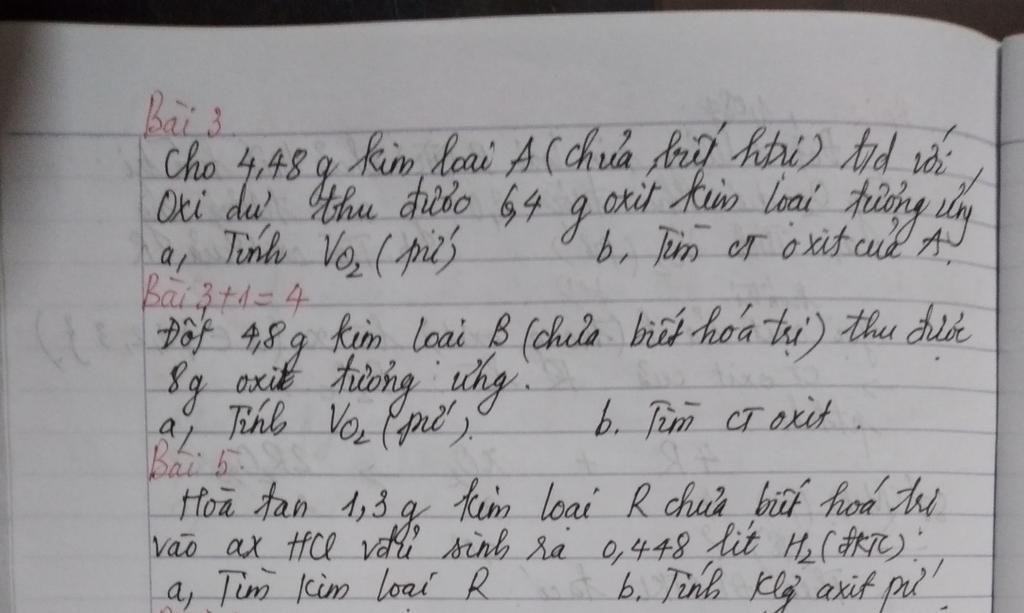 Bài 3.
Cho 4,48 g kim loại A (chưa biết htrị) t/d với
Oxi dư thu được 6,4 g oxit kim loại tương ứng
a, Tính VO₂ (pứ) b, Tìm CT oxit của A.
Bài 3+1 = 4
Đốt 4,8 g kim loại B (chưa biết hoá trị) thu được
8g oxit tương ứng.
a, Tính VO₂ (pứ). b. Tìm CT oxit.
Bài 5.
Hoà tan 1,3 g kim loại R chưa biết hoá trị
vào ax HCl vđủ sinh ra 0,448 lít H₂ (đktc)
a, Tìm kim loại R b. Tính klg axit pứ